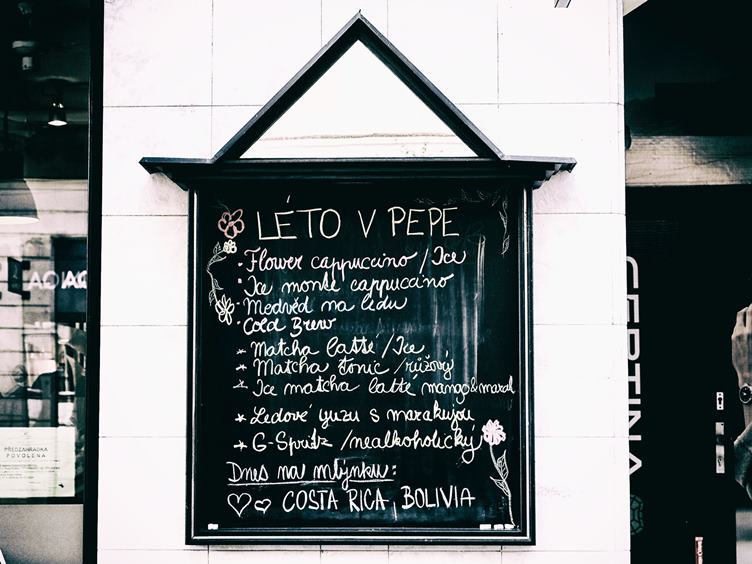 LÉTO V PEPE
· Flower cappuccino / Ice
· Ice monte cappuccino
· Medvěd na ledu
· Cold Brew
* Matcha latté / Ice
* Matcha tonic / růžový
* Ice matcha latté mango & maral
* Ledové yuzu s marakujou
* G-Spritz / nealkoholický
Dnes na mlýnku:
COSTA RICA, BOLIVIA
PŘEDZAHRÁDKA
POVOLENA
CERTINA